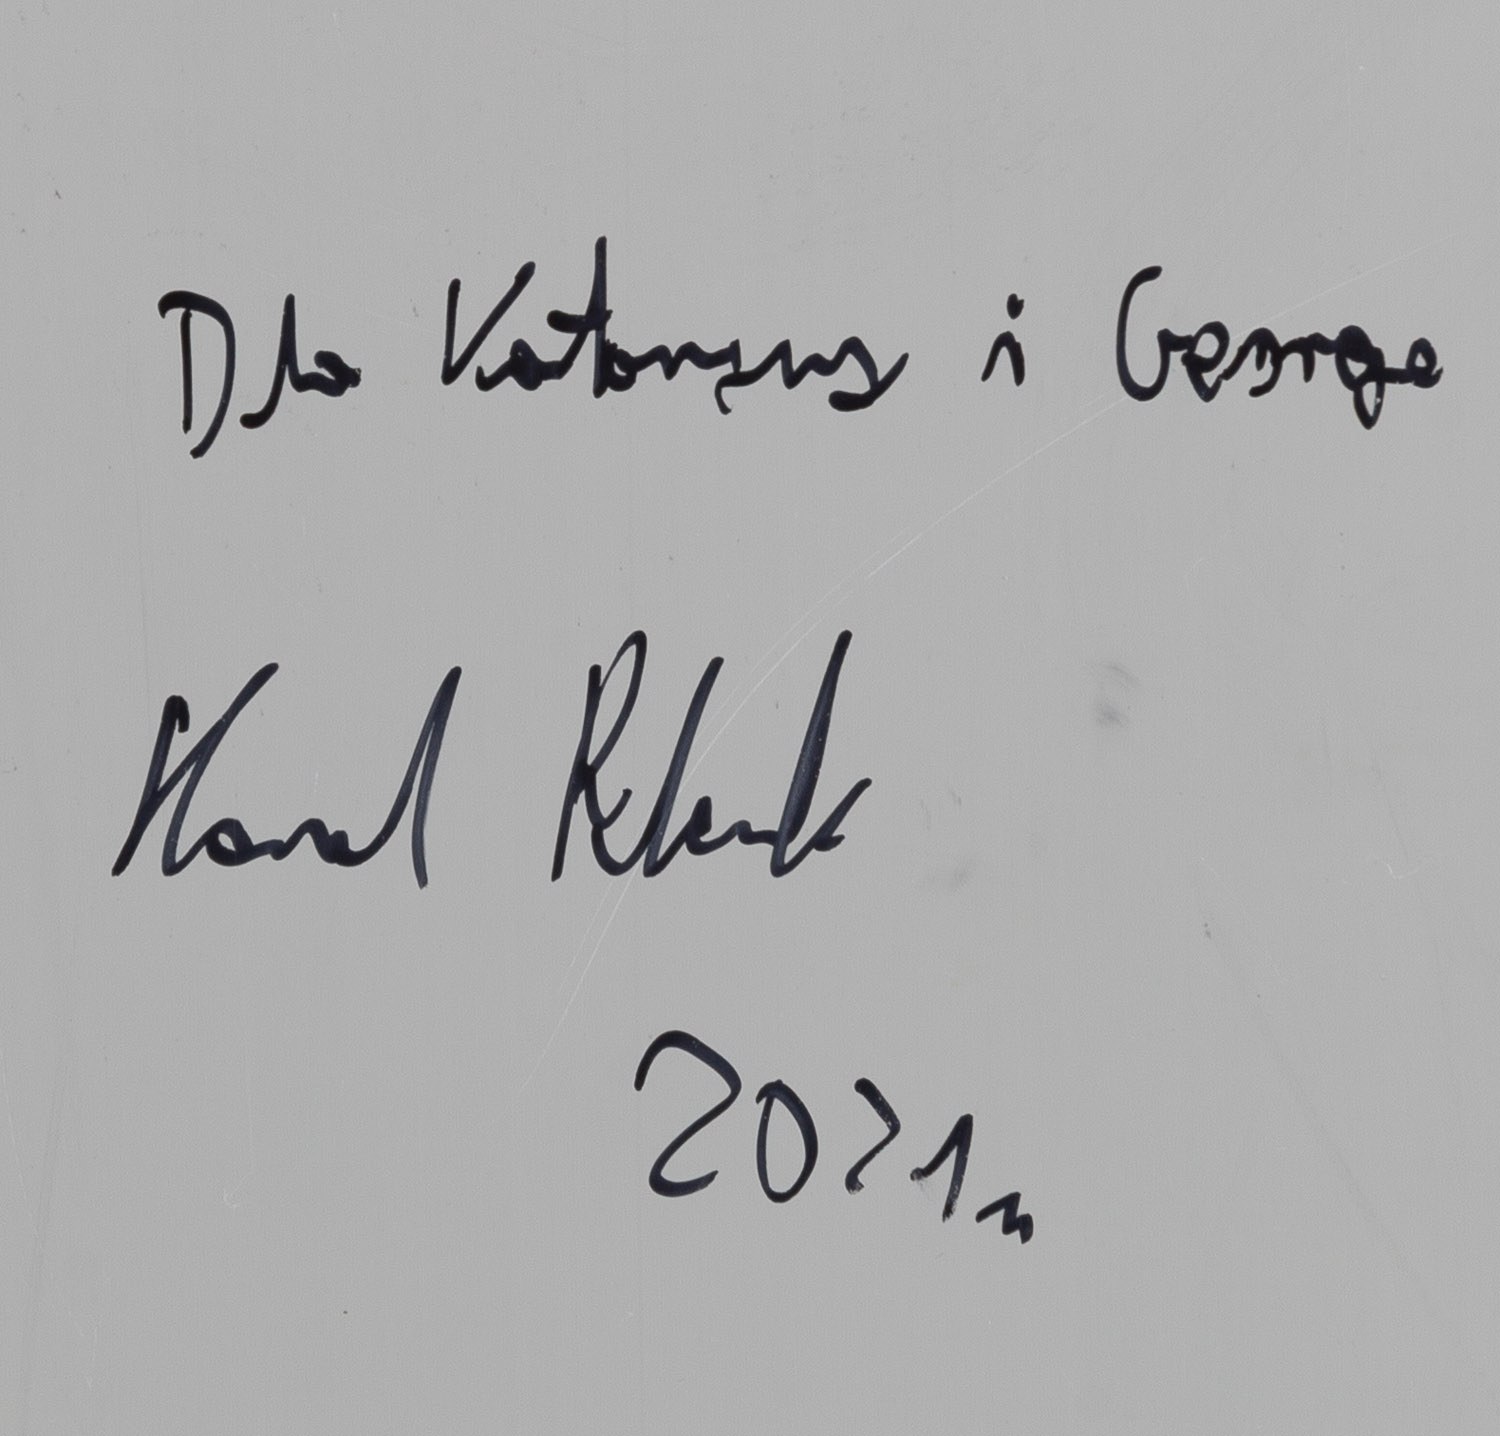 Dla Katarzyny i George
Karol
2021r